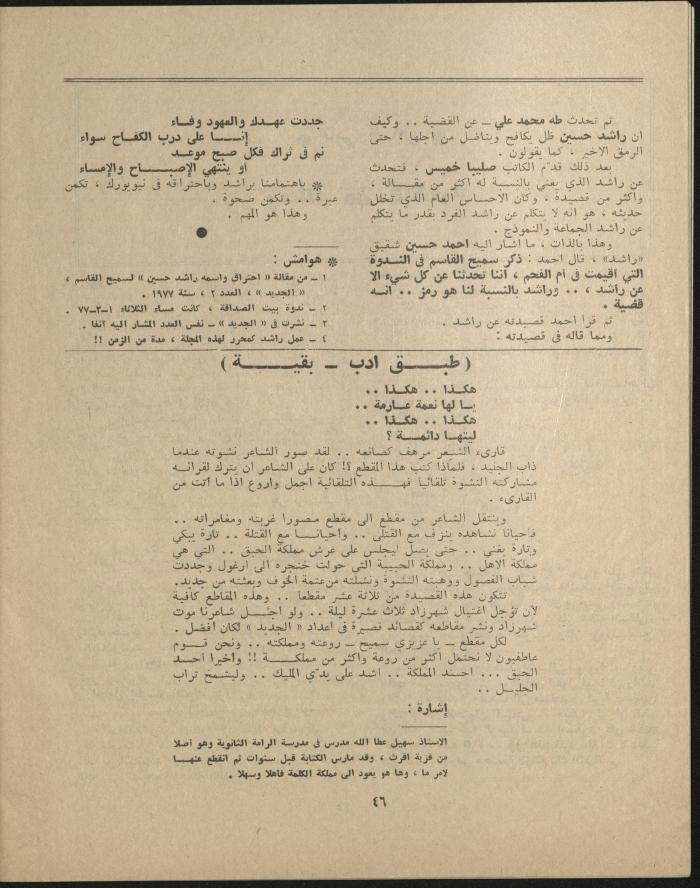 ثم تحدث طه محمد علي ــ عن القضية .. وكيف
ان راشد حسين ظل يكافح ويناضل من اجلها ، حتى
الرمق الاخير . كما يقولون .
بعد ذلك قدّم الكاتب صليبا خميس ، فتحدث
عن راشد الذي يعني بالنسبة له اكثر من مقــالة ،
واكثر من قصيدة ، وكان الاحساس العام الذي تخلل
حديثه ، هو انه لا يتكلم عن راشد الفرد بقدر ما يتكلم
عن راشد الجماعة والنموذج .
وهذا بالذات ، ما اشار اليه احمد حسين شقيق
«راشد» ، قال احمد : ذكر سميح القاسم في النــدوة
التي اقيمت في ام الفحم ، اننا تحدثنا عن كل شيء الا
عن راشد ، .. وراشد بالنسبة لنا هو رمز .. انــه
قضية .
ثم قرا احمد قصيدته عن راشد .
ومما قاله في قصيدته :
جددت عهــدك والعهود وفــاء
إنــــا على درب الكفــاح سواء
نم في ثراك فكل صبح موعــد
او ينتهي الإصبــــاح والإمساء
* باهتمامنا براشد وباحتراقه في نيويورك ، تكمن
عبرة .. وتكمن صحوة .
وهذا هو المهم .
* هوامش :
١ ــ من مقالة « احتراق واسمه راشد حسين » لسميح القاسم ،
« الجديد » ، العدد ٢ ، سنة ١٩٧٧ .
٢ ــ ندوة بيت الصداقة ، كانت مساء الثلاثاء ١ــ٣ــ٧٧ .
٣ ــ نشرت في « الجديد » ــ نفس العدد المشار اليه آنفا .
٤ ــ عمل راشد كمحرر لهذه المجلة ، مدة من الزمن !!
( طبــــق ادب ــ بقيــــــة )
هكــذا .. هكــذا ..
يــا لها نعمة عــارمة ..
هكــذا .. هكــذا ..
ليتهــا دائمــــة ؟
قارىء الشعر مرهف كصانعه .. لقد صور الشاعر نشوته عندما
ذاب الجليد ، فلماذا كتب هذا المقطع ؟! كان على الشاعر ان يترك لقرائــه
مشاركته النشوة تلقائيا فهــــذه التلقائية اجمل واروع اذا ما اتت من
القارىء .
وينتقل الشاعر من مقطع الى مقطع مصورا غربته ومغامراته ..
فاحيانا نشاهده ينزف مع القتلى .. واحيانــــا مع القتلة .. تارة يبكي
وتارة يغني .. حتى يصل ليجلس على عرش مملكة الحبق .. التي هي
مملكة الاهل .. ومملكة الحبيبة التي حولت خنجره الى ارغول وجددت
شباب الفصول ووهبته النشوة ونشلته من عتمة الخوف وبعثته من جديد.
تتكون هذه القصيدة من ثلاثة عشر مقطعا .. وهذه المقاطع كافية
لان تؤجل اغتيال شهرزاد ثلاث عشرة ليلة .. ولو اجّــل شاعرنا موت
شهرزاد ونشر مقاطعه كقصائد قصيرة في اعداد « الجديد » لكان افضل .
لكل مقطع ــ يا عزيزي سميح ــ روعته ومملكته .. ونحن قــــوم
عاطفيون لا نحتمل اكثر من روعة واكثر من مملكــــة !! واخيرا احسد
الحبق ... احسد المملكة .. اشد على يدّي المليك .. وليشمخ تراب
الجليــل ..
إشارة :
الاستاذ سهيل عطا الله مدرس في مدرسة الرامة الثانوية وهو اصلا
من قرية اقرث ، وقد مارس الكتابة قبل سنوات ثم انقطع عنهــا
لامر ما ، وها هو يعود الى مملكة الكلمة فاهلا وسهلا .
٤٦